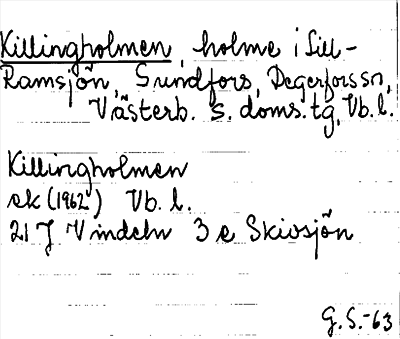 Killingholmen, holme i Lill-
Ramsjön, Sundfors, Degerforssn,
Västerb. s. doms.tg, Vb. l.
Killingholmen
ek (1962) Vb. l.
21 J Vindeln 3 e Skivsjön
G. S. -63